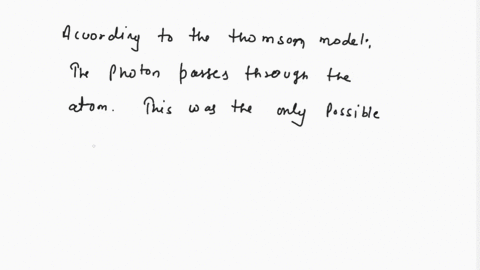 According to the thomson model:,
The Photon passes through the
atom. This was the only Possible